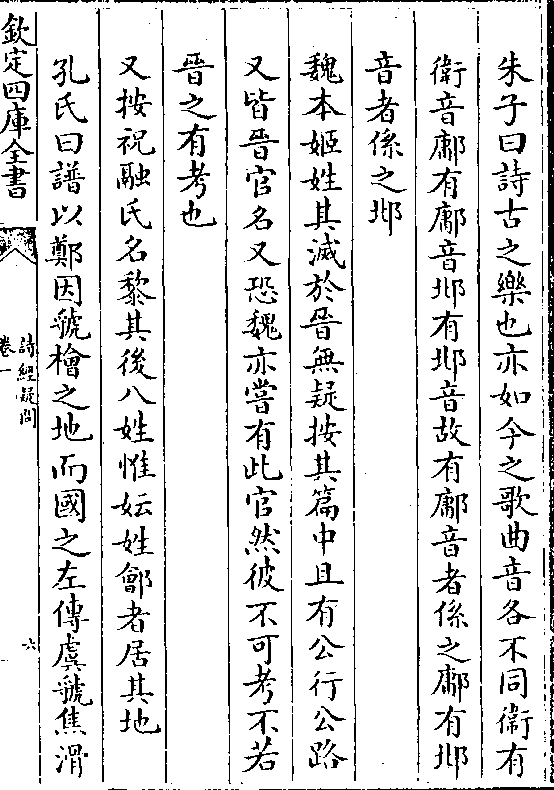 朱子曰詩古之樂也亦如今之歌曲音各不同衞有
衛音鄘有鄘音邶有邶音故有鄘音者係之鄘有邶
音者係之邶
魏本姬姓其滅於晉無疑按其篇中且有公行公路
又皆晉官名又恐魏亦嘗有此官然彼不可考不若
晉之有考也
又按祝融氏名黎其後八姓惟妘姓鄶者居其地
孔氏曰譜以鄭因虢檜之地而國之左傳虞虢焦滑
欽定四庫全書
詩經疑問
卷一
六